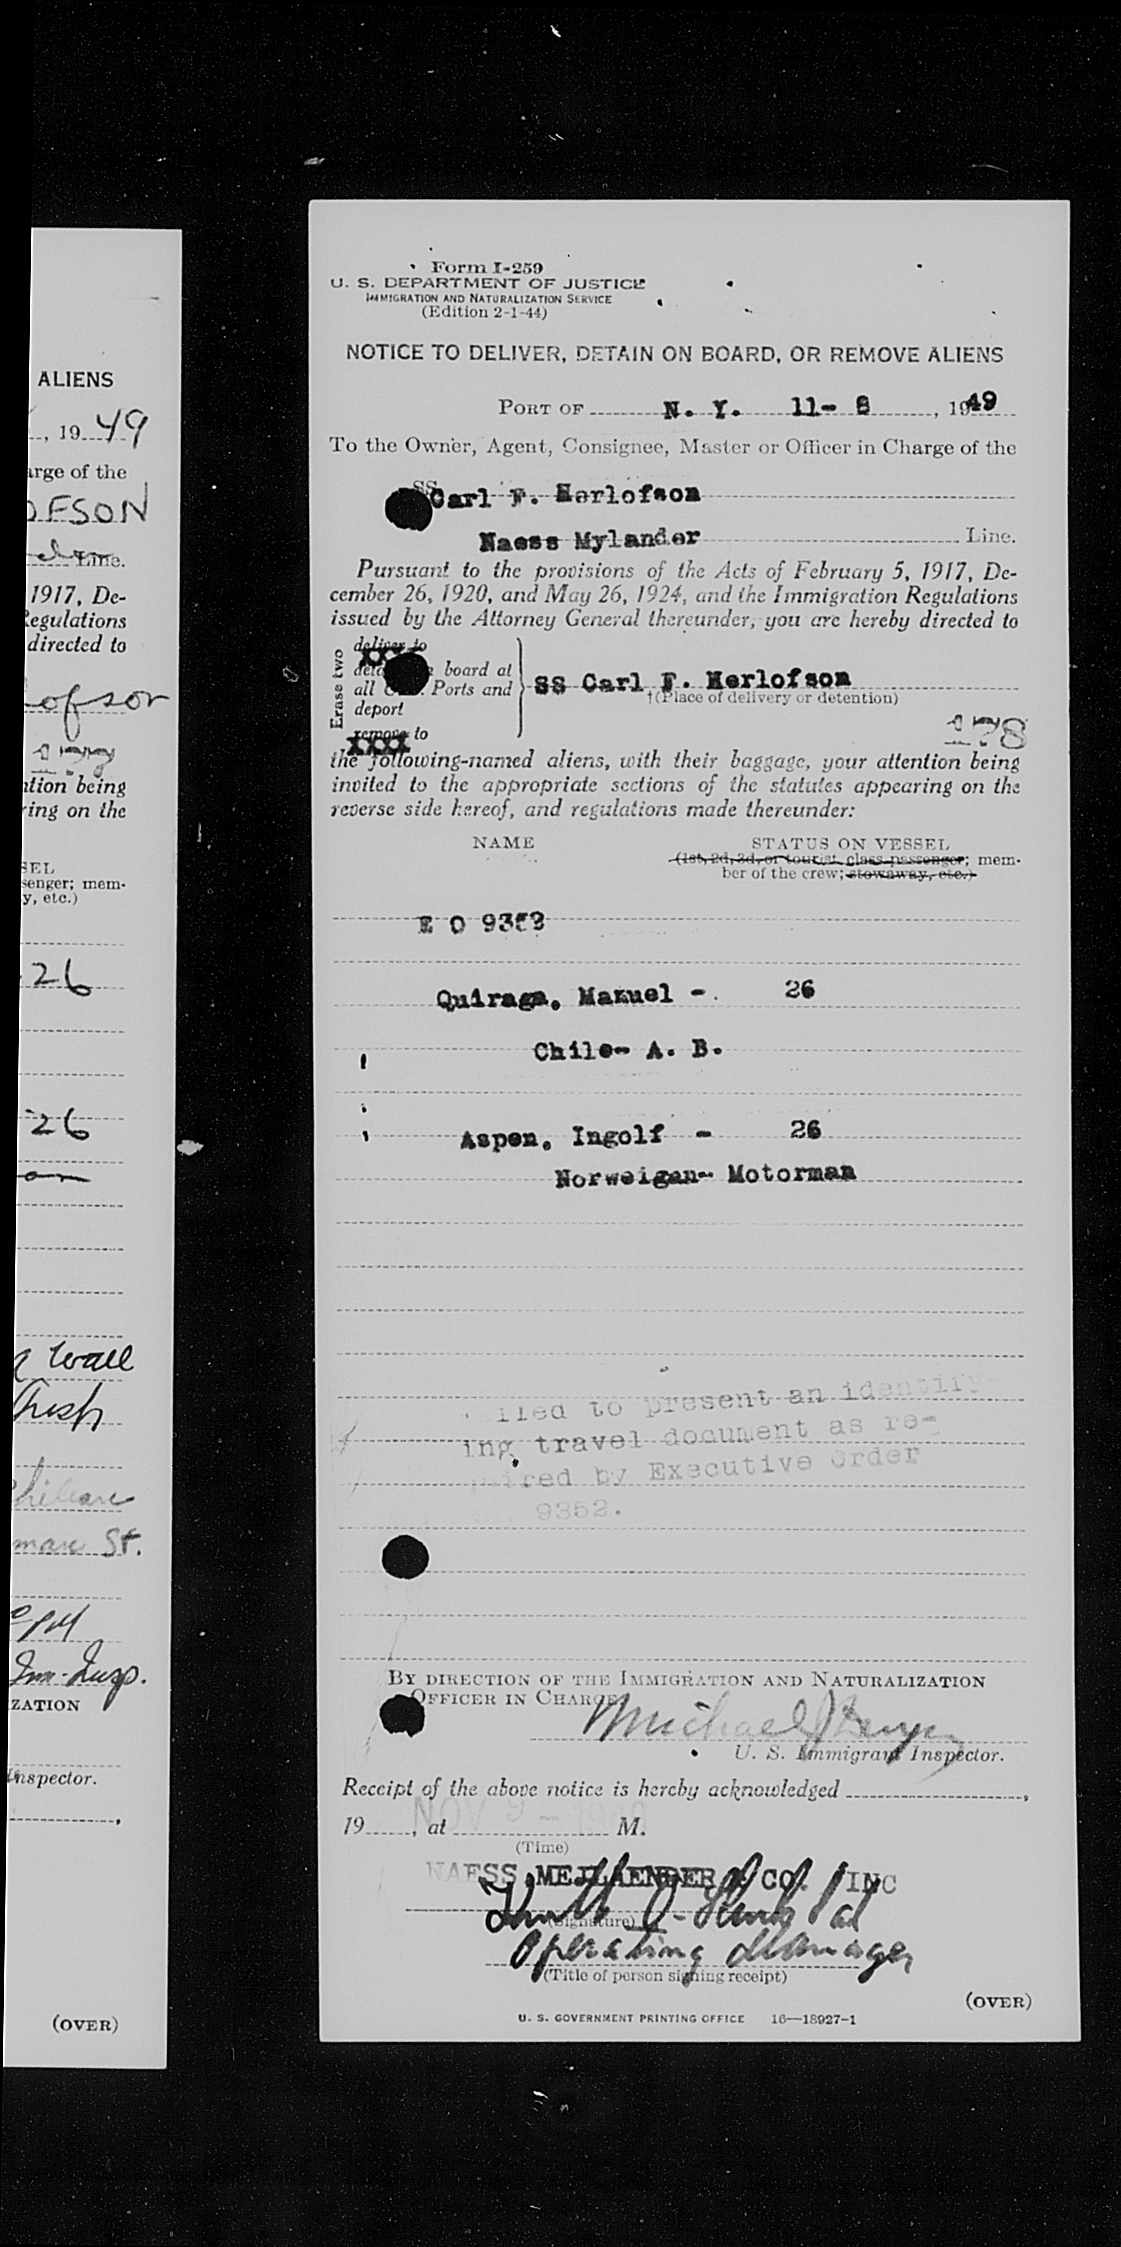 ALIENS
, 19 49
arge of the
OFSON
Line.
1917, De-
Regulations
directed to
lofson
177
ntion being
ring on the
SEL
senger; mem-
y, etc.)
26
26
Wall
Chilean
St.
Imm. Insp.
ZATION
Inspector.
(OVER)
Form I-259
U. S. DEPARTMENT OF JUSTICE
IMMIGRATION AND NATURALIZATION SERVICE
(Edition 2-1-44)
NOTICE TO DELIVER, DETAIN ON BOARD, OR REMOVE ALIENS
PORT OF N. Y. 11- 8, 1949
To the Owner, Agent, Consignee, Master or Officer in Charge of the
SS Carl F. Herlofson
Naess Mylander Line.
Pursuant to the provisions of the Acts of February 5, 1917, De-
cember 26, 1920, and May 26, 1924, and the Immigration Regulations
issued by the Attorney General thereunder, you are hereby directed to
Erase two
deliver to
board at
all Ports and
deport
remove to
SS Carl F. Herlofson
†(Place of delivery or detention)
178
the following-named aliens, with their baggage, your attention being
invited to the appropriate sections of the statutes appearing on the
reverse side hereof, and regulations made thereunder:
NAME STATUS ON VESSEL
(1st, 2d, 3d, or tourist class passenger; mem-
ber of the crew; stowaway, etc.)
E O 9352
Quiraga, Manuel - 26
Chile- A. B.
Aspen, Ingolf - 26
Norweigan- Motorman
iled to present an identify-
ing travel document as re-
quired by Executive Order
9352.
BY DIRECTION OF THE IMMIGRATION AND NATURALIZATION
OFFICER IN CHARGE
Michael J
U. S. Immigrant Inspector.
Receipt of the above notice is hereby acknowledged ,
NOV 9 - 19
19 , at M.
(Time)
NAESS, MEJLAENDER & CO. INC
(Signature)
Operating Manager
(Title of person signing receipt)
(OVER)
U. S. GOVERNMENT PRINTING OFFICE 16—18927-1